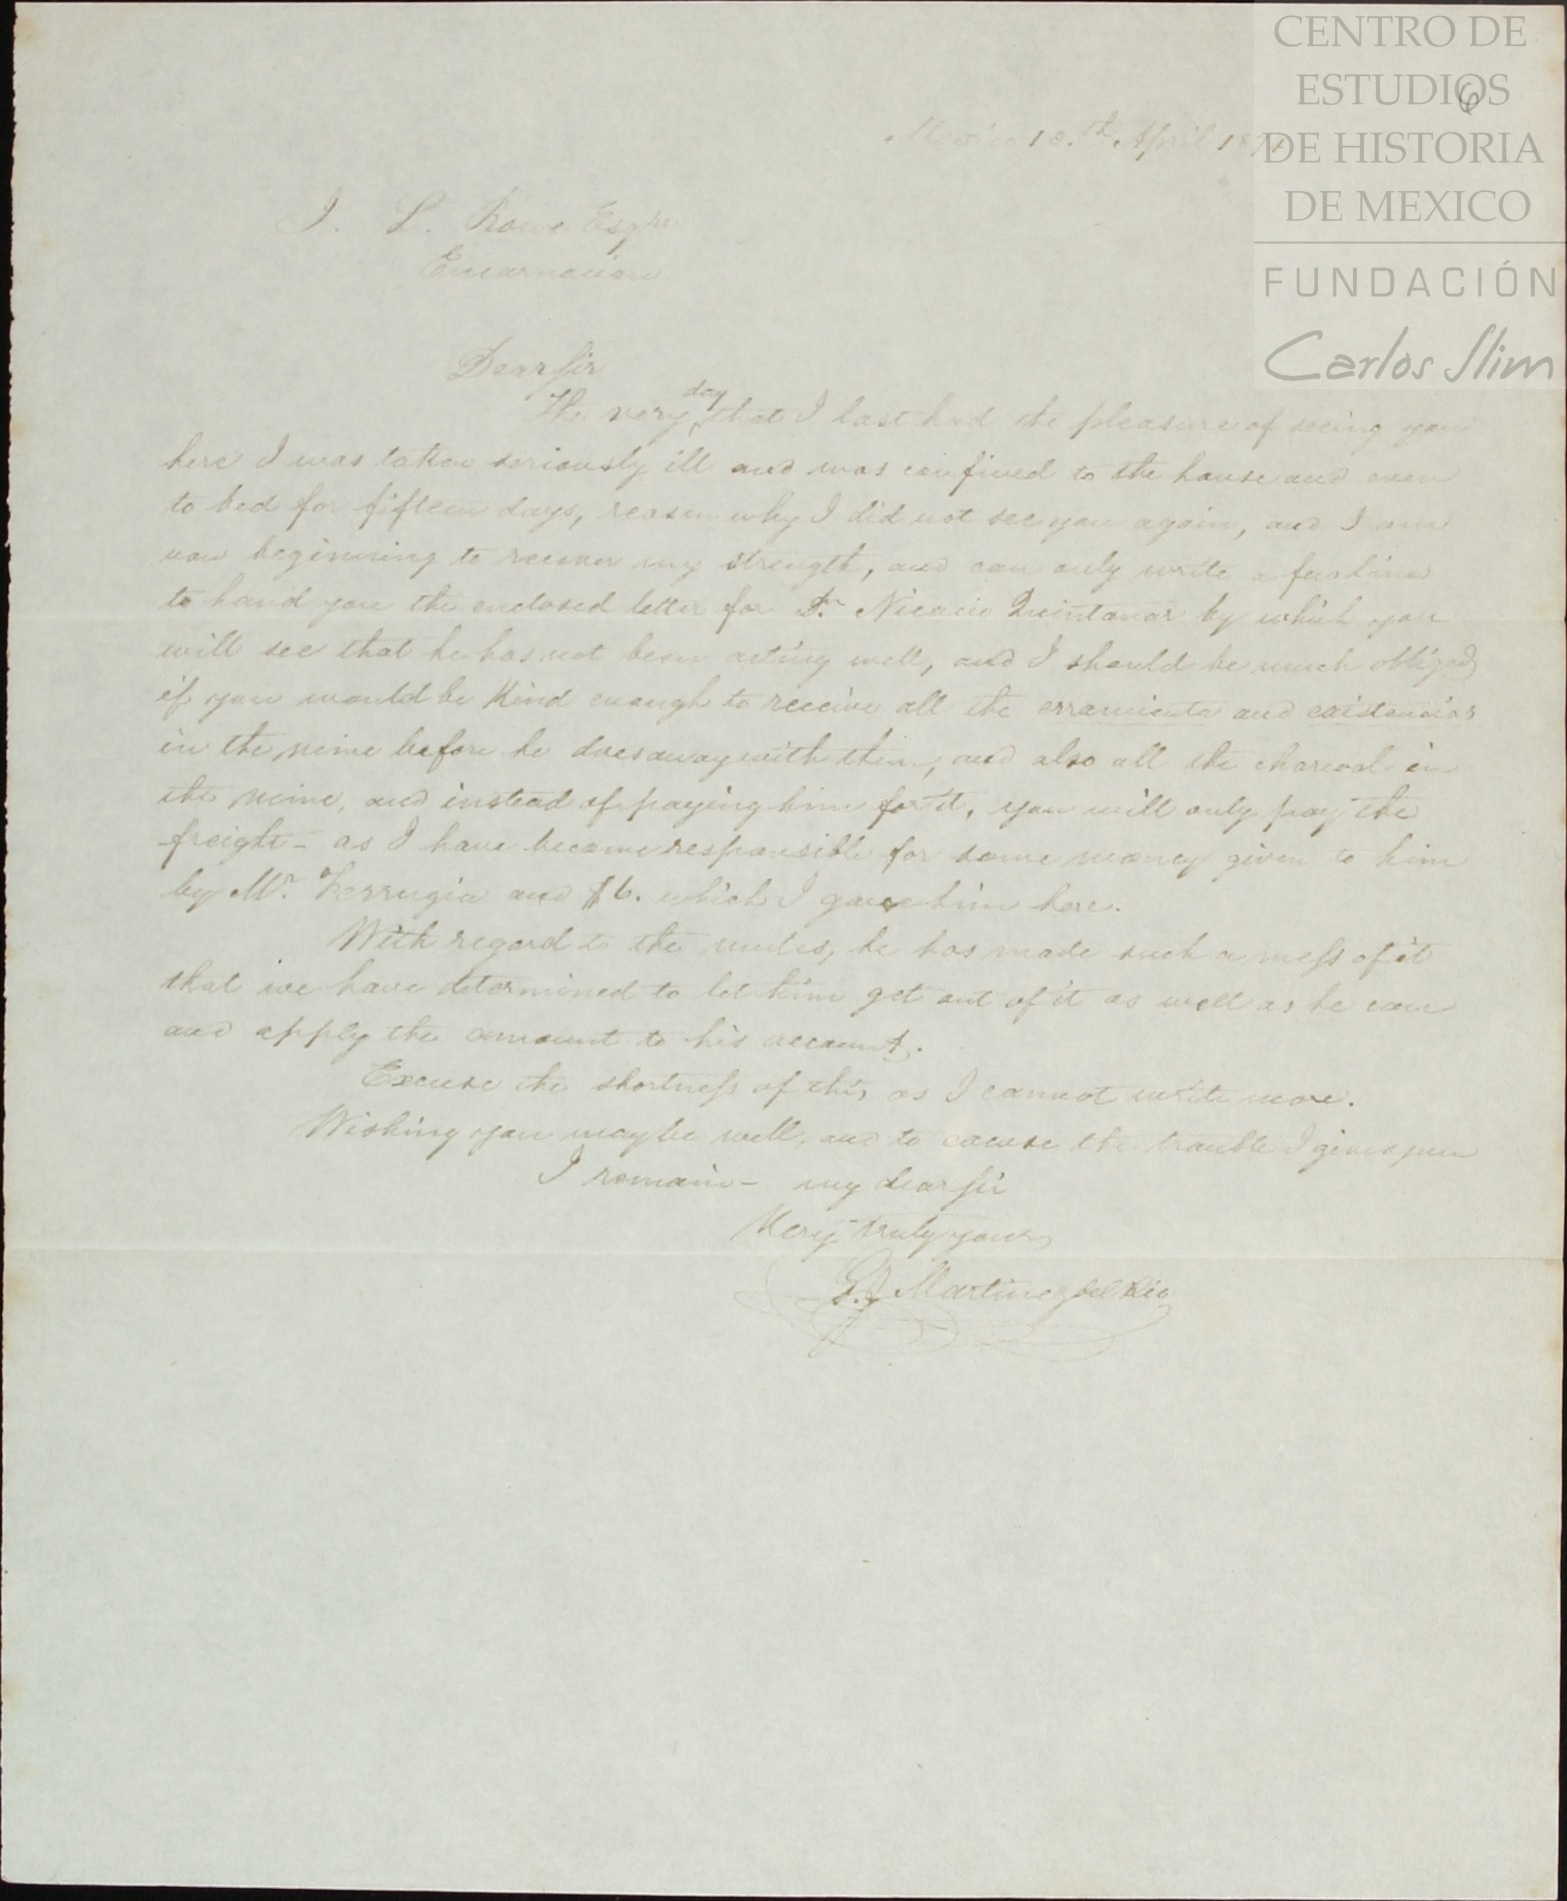 CENTRO DE
ESTUDIOS
DE HISTORIA
DE MEXICO
FUNDACIÓN
Carlos Slim
6
Mexico 10.th April 18
J. L. Rowe Esqre
Encarnacion
Dear Sir
The very day that I last had the pleasure of seeing you
here I was taken seriously ill and was confined to the house and even
to bed for fifteen days, reason why I did not see you again, and I am
now beginning to recover my strength, and can only write a few lines
to hand you the enclosed letter for Dn. Nicacio Quintanar by which you
will see that he has not been acting well, and I should be much obliged
if you would be Kind enough to receive all the erramienta and existencias
in the mine before he does away with them, and also all the charcoal in
the mine, and instead of paying him for it, you will only pay the
freight - as I have become responsible for some money given to him
by Mr. Ferrugia and $6. which I gave him here.
With regard to the mules, he has made such a mess of it
that we have determined to let him get out of it as well as he can
and apply the amount to his account.
Excuse the shortness of this as I cannot write more.
Wishing you may be well, and to excuse the trouble I give you
I remain - my dear Sir
Very truly yours
G. Martinez del Rio